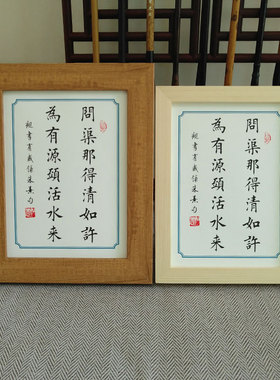 問渠那得清如許
為有源頭活水来
觀書有感信朱熹句
問渠那得清如許
為有源頭活水来
觀書有感信朱熹句